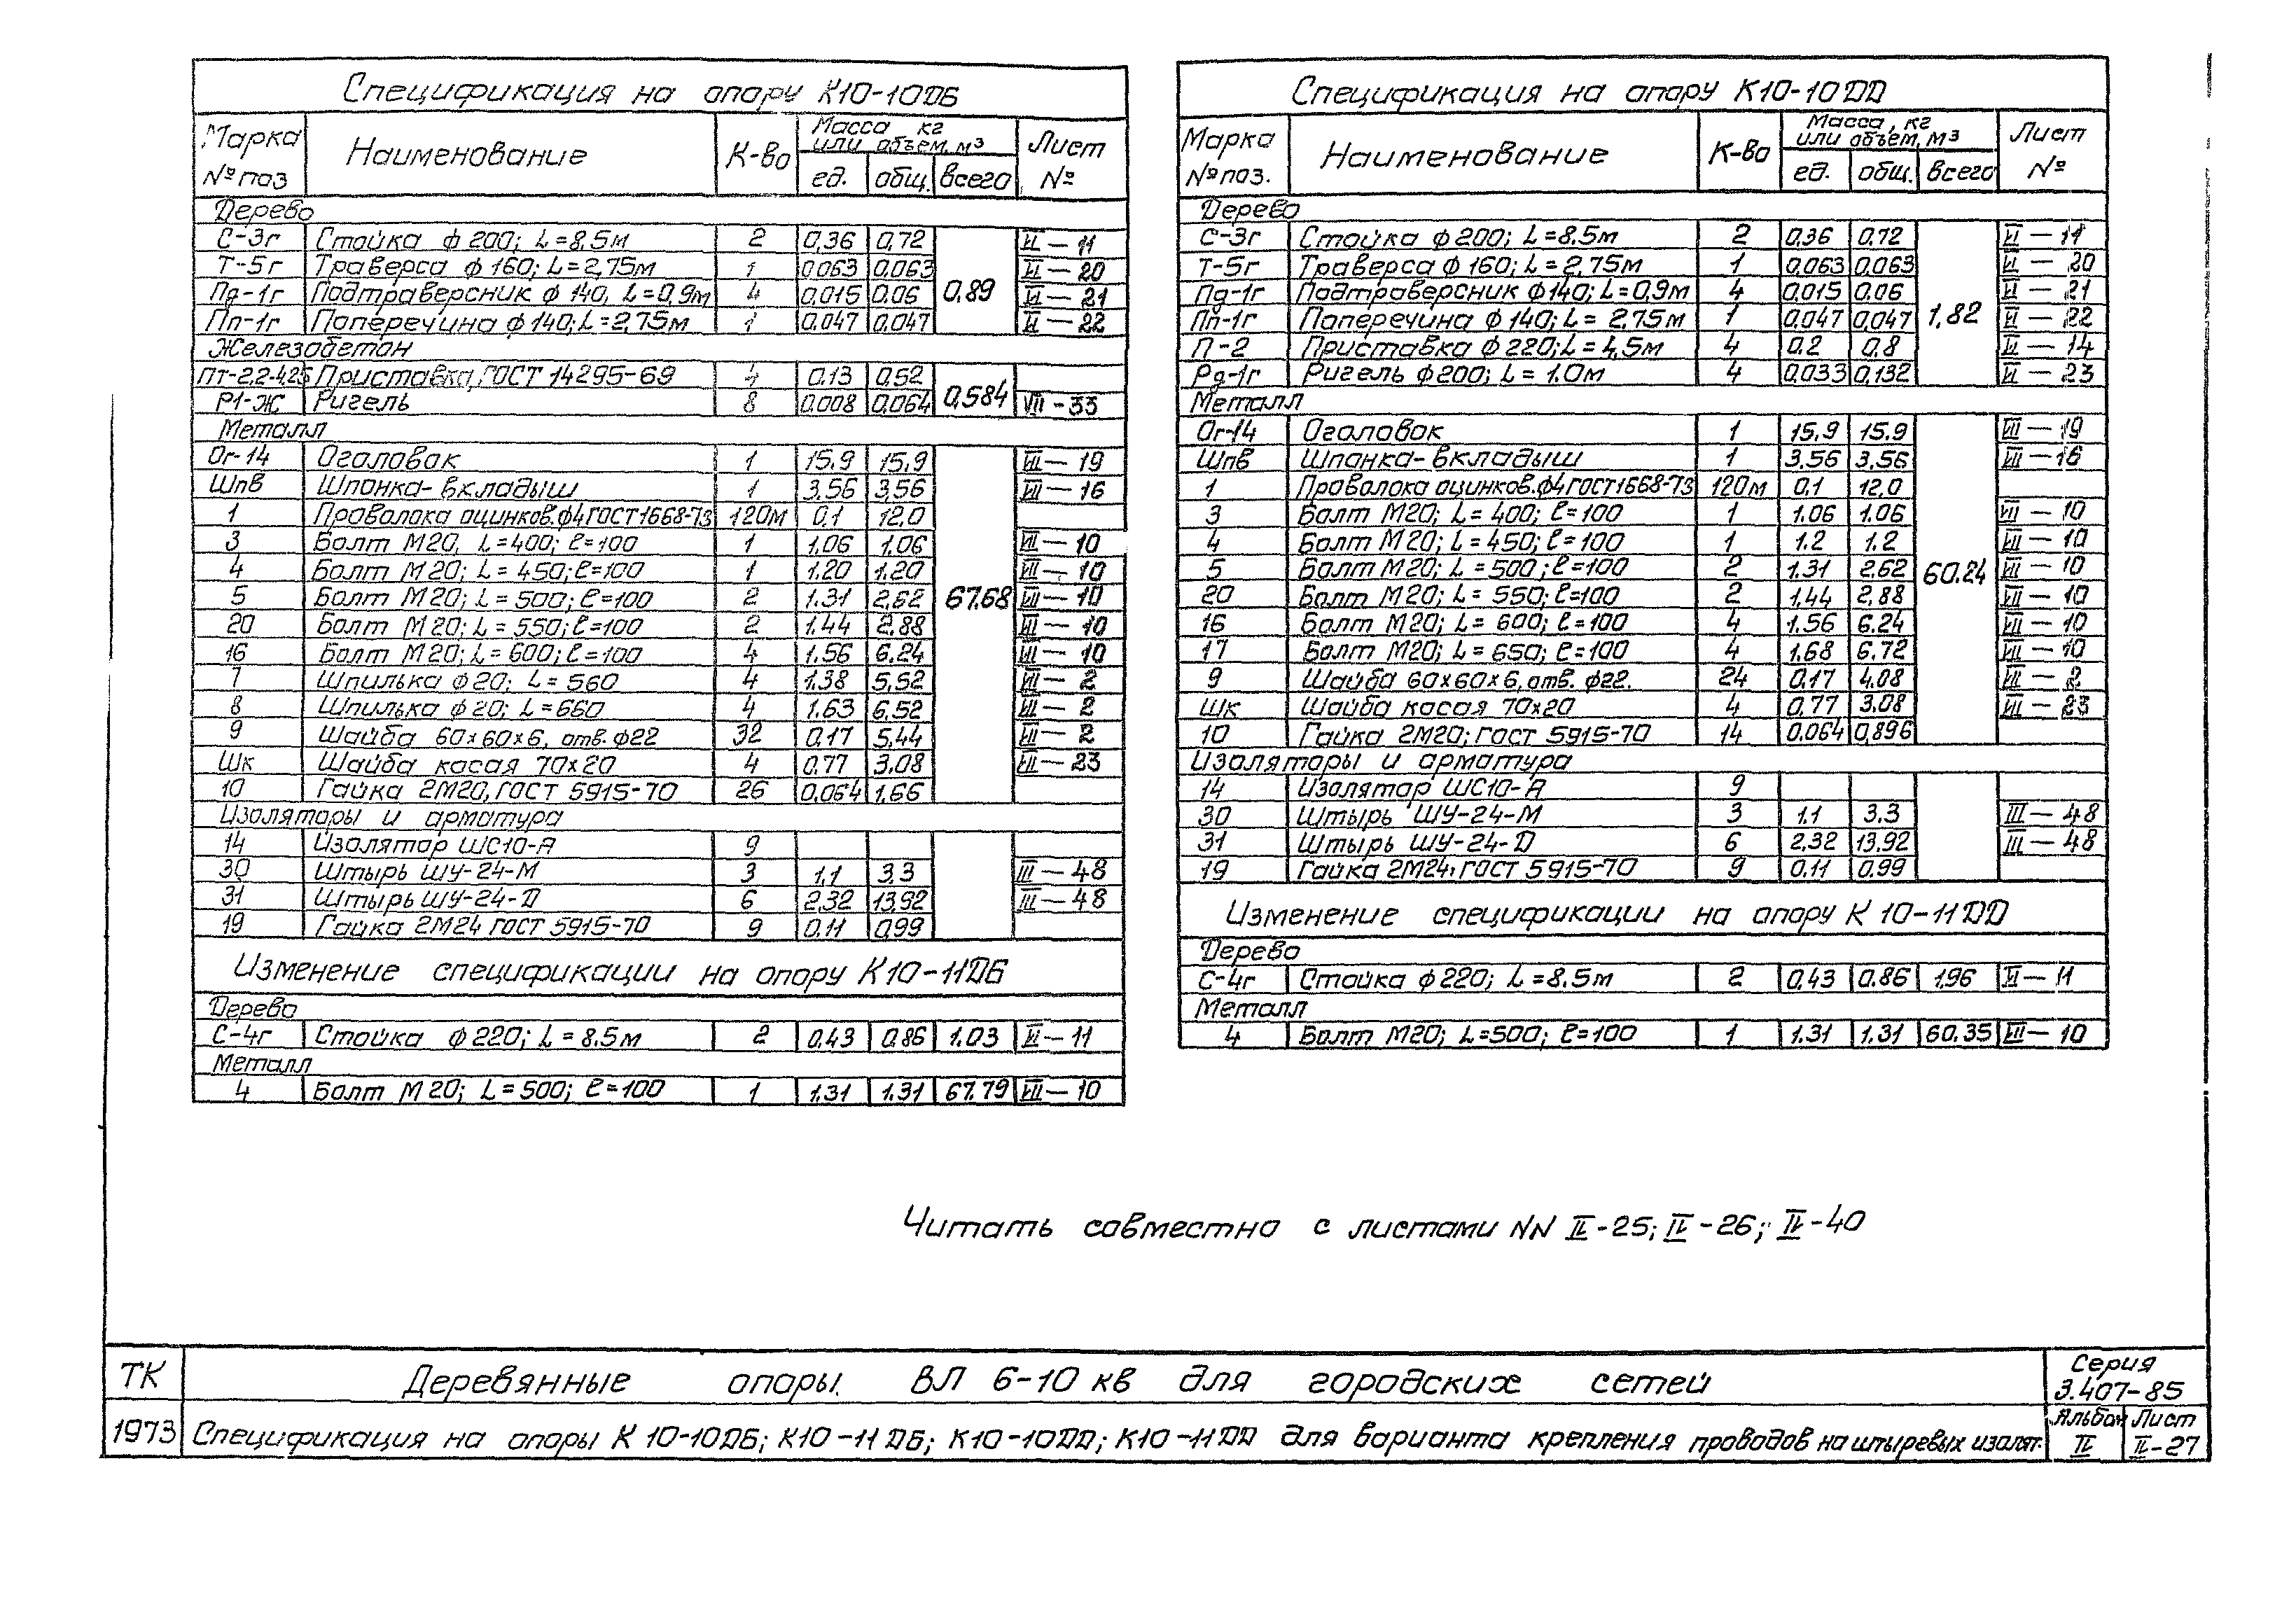 Спецификация на опору К10-10ДБ
Марка № поз Наименование К-во Масса кг или объем, м3 Лист №
ед. общ. всего
Дерево
С-3г Стойка ф 200; L=8.5м 2 0,36 0,72 0,89 VI-11
Т-5г Траверса ф 160; L=2,75м 1 0,063 0,063 VI-20
Пд-1г Подтраверсник ф 140, L=0,9м 4 0,015 0,06 VI-21
Пп-1г Поперечина ф 140; L=2,75м 1 0,047 0,047 VI-22
Железобетон
ПТ-2,2-4,25 Приставка, ГОСТ 14295-69 4 0.13 0,52 0,584
Р1-Ж Ригель 8 0.008 0,064 VII-33
Металл
Ог-14 Оголовок 1 15,9 15,9 67.68 VII-19
ШпВ Шпонка-вкладыш 1 3,56 3,56 VII-16
1 Проволока оцинков. ф4 ГОСТ 1668-73 120м 0,1 12,0
3 Болт М20, L=400; ℓ=100 1 1,06 1,06 VII-10
4 Болт М20; L=450; ℓ=100 1 1.20 1,20 VII-10
5 Болт М20; L=500; ℓ=100 2 1.31 2,62 VII-10
20 Болт М20; L=550; ℓ=100 2 1.44 2.88 VII-10
16 Болт М20; L=600; ℓ=100 4 1.56 6.24 VII-10
7 Шпилька ф20; L=560 4 1.38 5,52 VII-2
8 Шпилька ф20; L=660 4 1.63 6,52 VII-2
9 Шайба 60x60x6, отв. ф22 32 0,17 5,44 VII-2
Шк Шайба косая 70x20 4 0.77 3,08 VII-23
10 Гайка 2М20, ГОСТ 5915-70 26 0,064 1,66
Изоляторы и арматура
14 Изолятор ШС10-А 9
30 Штырь ШУ-24-М 3 1,1 3,3 III-48
31 Штырь ШУ-24-Д 6 2,32 13,92 III-48
19 Гайка 2М24 ГОСТ 5915-70 9 0,11 0,99
Изменение спецификации на опору К10-11ДБ
Дерево
С-4г Стойка ф 220; L=8.5м 2 0,43 0,86 1.03 VI-11
Металл
4 Болт М20; L=500; ℓ=100 1 1,31 1.31 67.79 VII-10
Спецификация на опору К10-10ДД
Марка № поз. Наименование К-во Масса, кг или объем, м3 Лист №
ед. общ. всего
Дерево
С-3г Стойка ф 200; L=8.5м 2 0,36 0,72 1,82 VI-11
Т-5г Траверса ф 160; L=2,75м 1 0,063 0,063 VI-20
Пд-1г Подтраверсник ф140; L=0,9м 4 0,015 0,06 VI-21
Пп-1г Поперечина ф 140; L=2,75м 1 0,047 0,047 VI-22
П-2 Приставка ф220; L=4,5м 4 0.2 0,8 VI-14
Рд-1г Ригель ф200; L=1.0м 4 0,033 0,132 VI-23
Металл
Ог-14 Оголовок 1 15.9 15.9 60.24 VII-19
ШпВ Шпонка-вкладыш 1 3.56 3,56 VII-16
1 Проволока оцинков. ф4 ГОСТ 1668-73 120м 0,1 12,0
3 Болт М20; L=400; ℓ=100 1 1.06 1.06 VII-10
4 Болт М20; L=450; ℓ=100 1 1.2 1.2 VII-10
5 Болт М20; L=500; ℓ=100 2 1.31 2,62 VII-10
20 Болт М20; L=550; ℓ=100 2 1,44 2,88 VII-10
16 Болт М20; L=600; ℓ=100 4 1.56 6.24 VII-10
17 Болт М20; L=650; ℓ=100 4 1,68 6.72 VII-10
9 Шайба 60x60x6, отв. ф22. 24 0,17 4,08 VII-2
Шк Шайба косая 70x20 4 0,77 3,08 VII-23
10 Гайка 2М20; ГОСТ 5915-70 14 0.064 0,896
Изоляторы и арматура
14 Изолятор ШС10-А 9
30 Штырь ШУ-24-М 3 1.1 3.3 III-48
31 Штырь ШУ-24-Д 6 2,32 13,92 III-48
19 Гайка 2М24, ГОСТ 5915-70 9 0.11 0.99
Изменение спецификации на опору К 10-11ДД
Дерево
С-4г Стойка ф220; L=8.5м 2 0,43 0.86 1,96 VI-11
Металл
4 Болт М20; L=500; ℓ=100 1 1.31 1,31 60.35 VII-10
Читать совместно с листами NN II-25; II-26; II-40
ТК Деревянные опоры ВЛ 6-10 кв для городских сетей Серия 3.407-85
1973 Спецификация на опоры К 10-10ДБ; К10-11ДБ; К10-10ДД; К10-11ДД для варианта крепления проводов на штыревых изолят. Альбом II Лист II-27